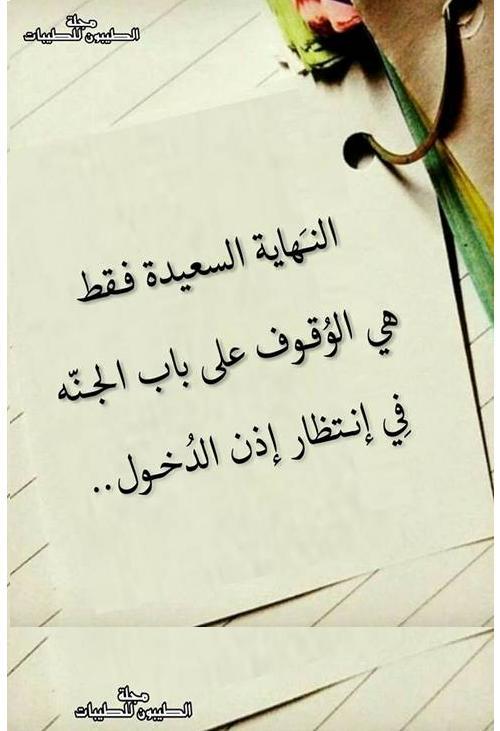 مجلة
الطيبون للطيبات
النـَهاية السعيدة فـقط
هي الوُقـوف على باب الجـنّه
فِي إنـتظار إذن الدُخـول..
مجلة
الطيبون للطيبات